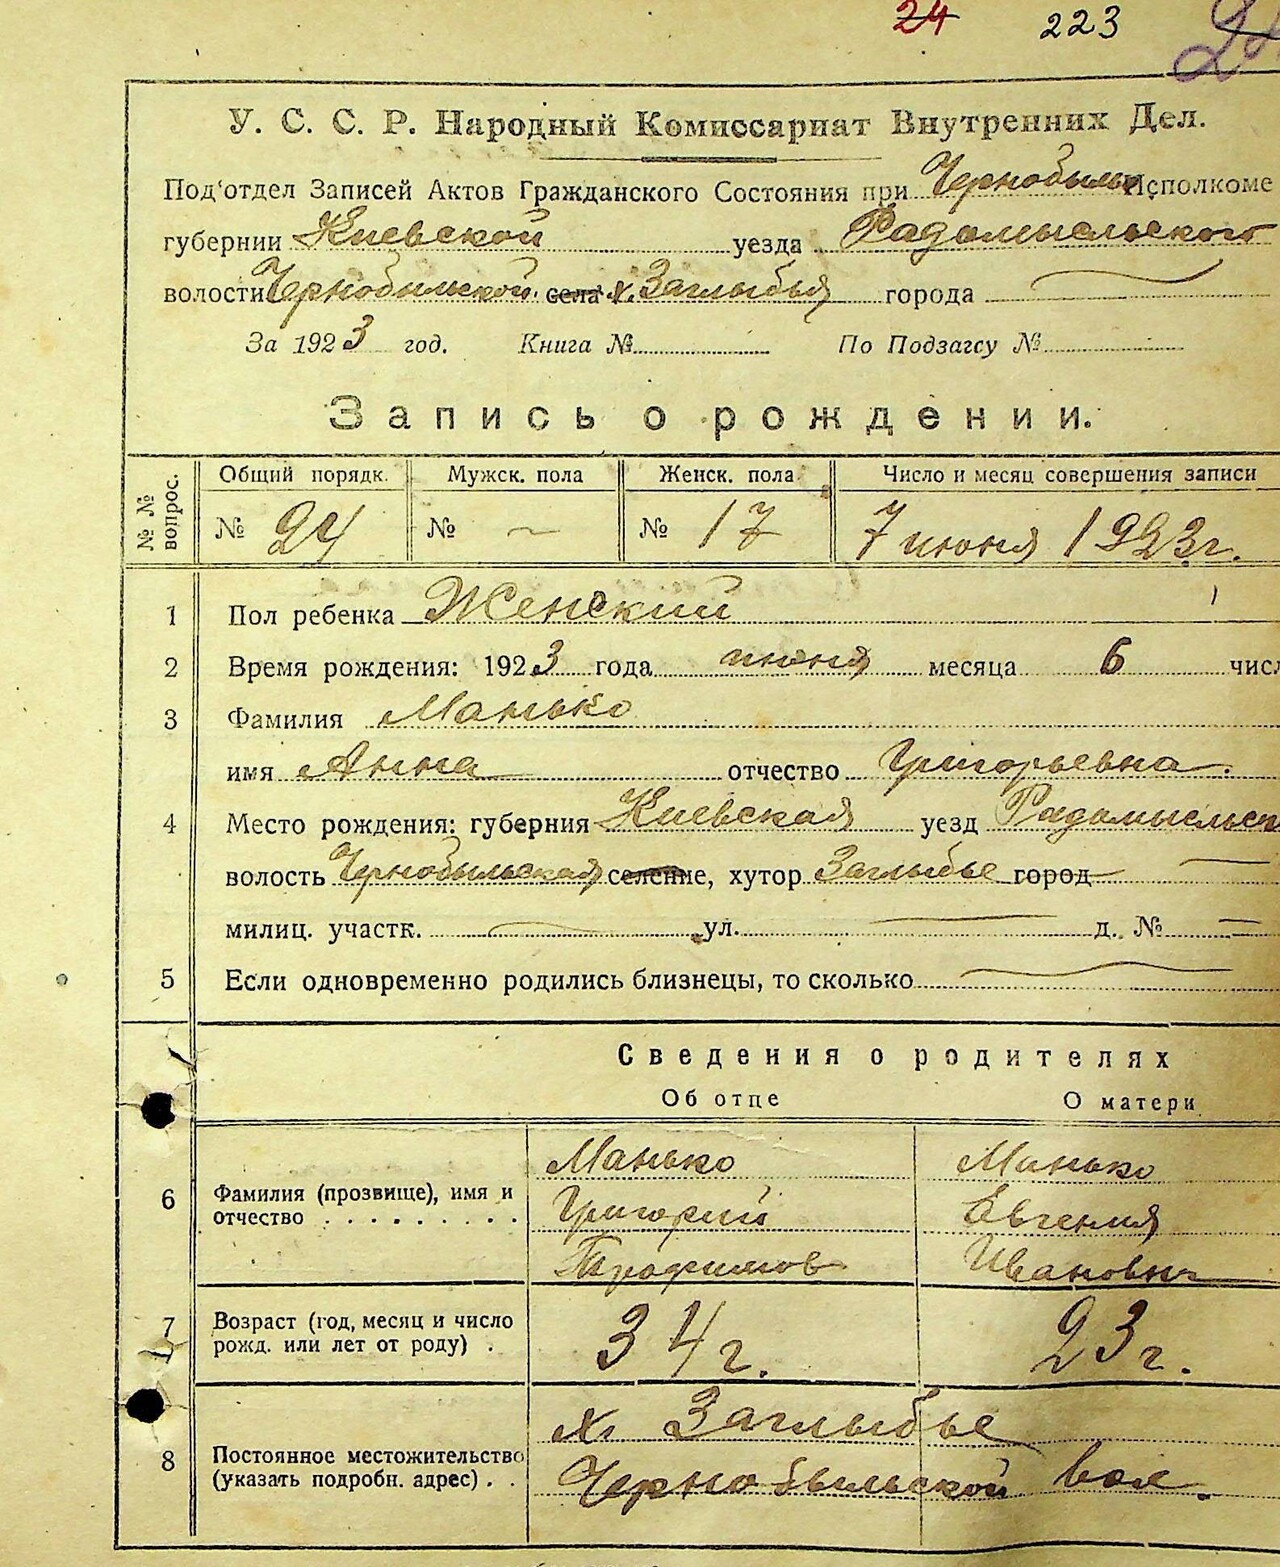 24 223
У. С. С. Р. Народный Комиссариат Внутренних Дел.
Под‘отдел Записей Актов Гражданского Состояния при Чернобыльс Исполкоме
губернии Киевской уезда Радомысльского
волости Чернобыльской села х. Заглыбья города
За 1923 год. Книга № По Подзагсу №
Запись о рождении.
№ № вопрос. Общий порядк. Мужск. пола Женск. пола Число и месяц совершения записи
№ 24 № № 17 7 июня 1923 г.
1 Пол ребенка Женский
2 Время рождения: 1923 года июня месяца 6 числ
3 Фамилия Манько
имя Анна отчество Григорьевна.
4 Место рождения: губерния Киевская уезд Радомысльск
волость Чернобыльская селение, хутор Заглыбье город
милиц. участк. ул. д. №
5 Если одновременно родились близнецы, то сколько
Сведения о родителях
Об отце О матери
Манько Манько
6 Фамилия (прозвище), имя и отчество Григорий Евгения
Трофимов Ивановн
7 Возраст (год, месяц и число рожд. или лет от роду) . 34 г. 23 г.
х. Заглыбье
8 Постоянное местожительство (указать подробн. адрес) . . Чернобыльской вол.